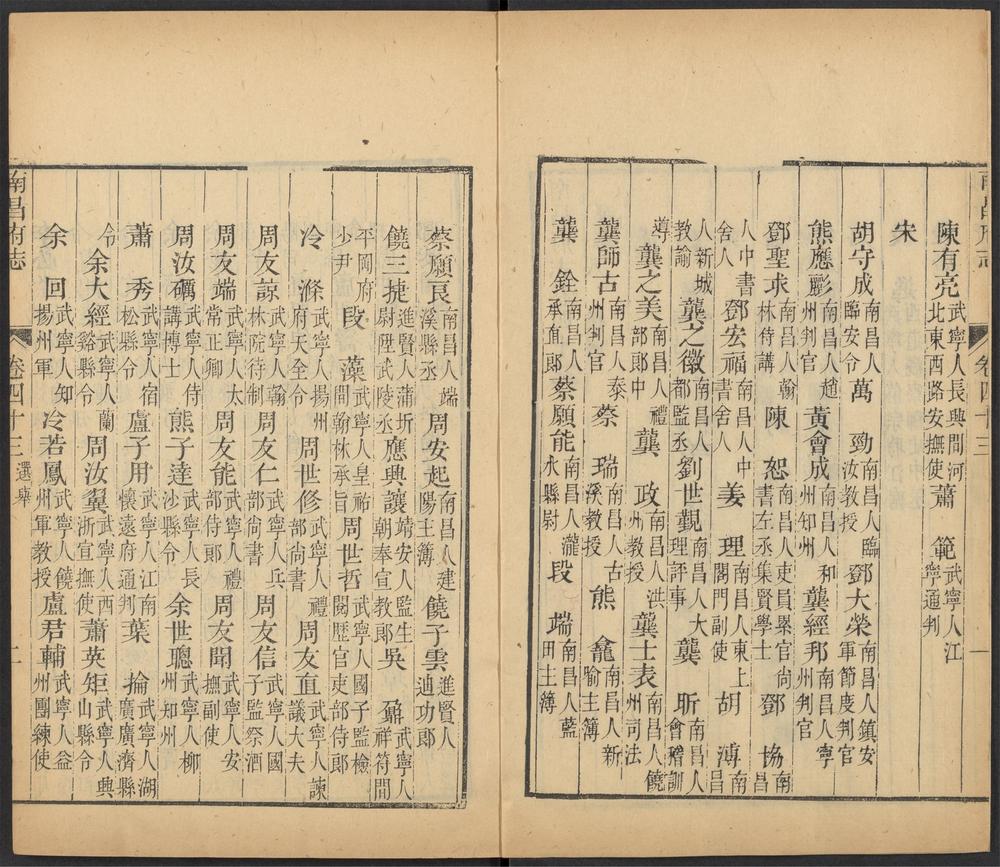 南昌府志 卷四十三 一
陳有亮武寧人長興間河北東西路安撫使蕭 範武寧人江寧通判
宋
胡守成南昌人臨安令萬 勁南昌人臨汝教授鄧大榮南昌人鎮安軍節度判官
熊應彲南昌人趙州判官黃會成南昌人和州知州龔經邦南昌人寧州判官
鄧聖求南昌人翰林侍講陳 恕南昌人吏員累官尚書左丞集賢學士鄧 協南昌
人中書舍人鄧宏福南昌人中書舍人姜 理南昌人東上閣門副使胡 溥南昌
人新城教諭龔之徽南昌人都監丞劉世覲南昌人大理評事龔 昕南昌人會稽訓
導龔之美南昌人禮部郎中龔 政南昌人洪州教授龔士表南昌人饒州司法
龔師古南昌人泰州判官蔡 瑞南昌人古溪教授熊 龕南昌人新喻主簿
龔 銓南昌人承直郎蔡願能南昌人瀧水縣尉段 端南昌人藍田主簿
蔡願良南昌人端溪縣丞周安起南昌人建陽主簿饒子雲進賢人迪功郎
饒三捷進賢人蒲圻尉陞武陵丞應興讓靖安人監生朝奉宣教郎吳 鼐武寧人祥符間
平岡府少尹段 藻武寧人皇祐間翰林承旨周世哲武寧人國子監檢閱歷官吏部侍郎
冷 滌武寧人揚州府天全令周世修武寧人禮部尚書周友直武寧人諫議大夫
周友諒武寧人翰林院待制周友仁武寧人兵部尚書周友信武寧人國子監祭酒
周友端武寧人太常正卿周友能武寧人禮部侍郎周友聞武寧人安撫副使
周汝礪武寧人侍講博士熊子達武寧人長沙縣令余世聰武寧人柳州知州
蕭 秀武寧人宿松縣令盧子用武寧人江南懷遠府通判葉 掄武寧人湖廣廣濟縣
令余大經武寧人蘭谿縣令周汝翼武寧人西浙宣撫使蕭英矩武寧人興山縣令
余 回武寧人知揚州軍冷若鳳武寧人饒州軍教授盧君輔武寧人益州團練使
南昌府志 卷四十三 選舉 二